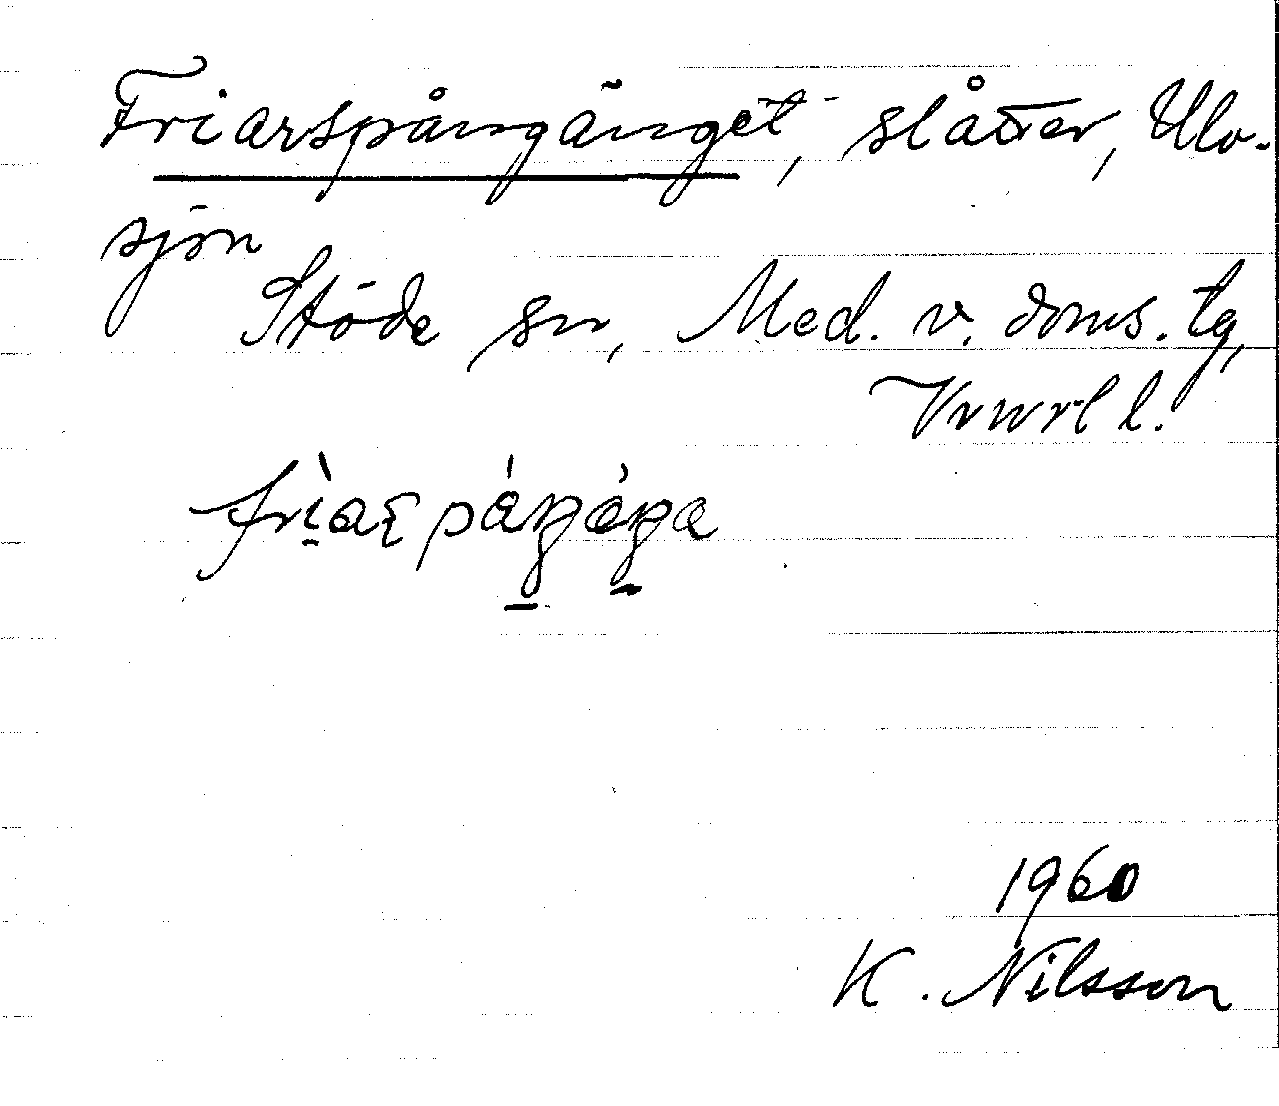 Friarspångänget, slåtter, Ulv-
sjön
Stöde sn, Med. v. doms. tg,
Vnrl l.
1960
K. Nilsson